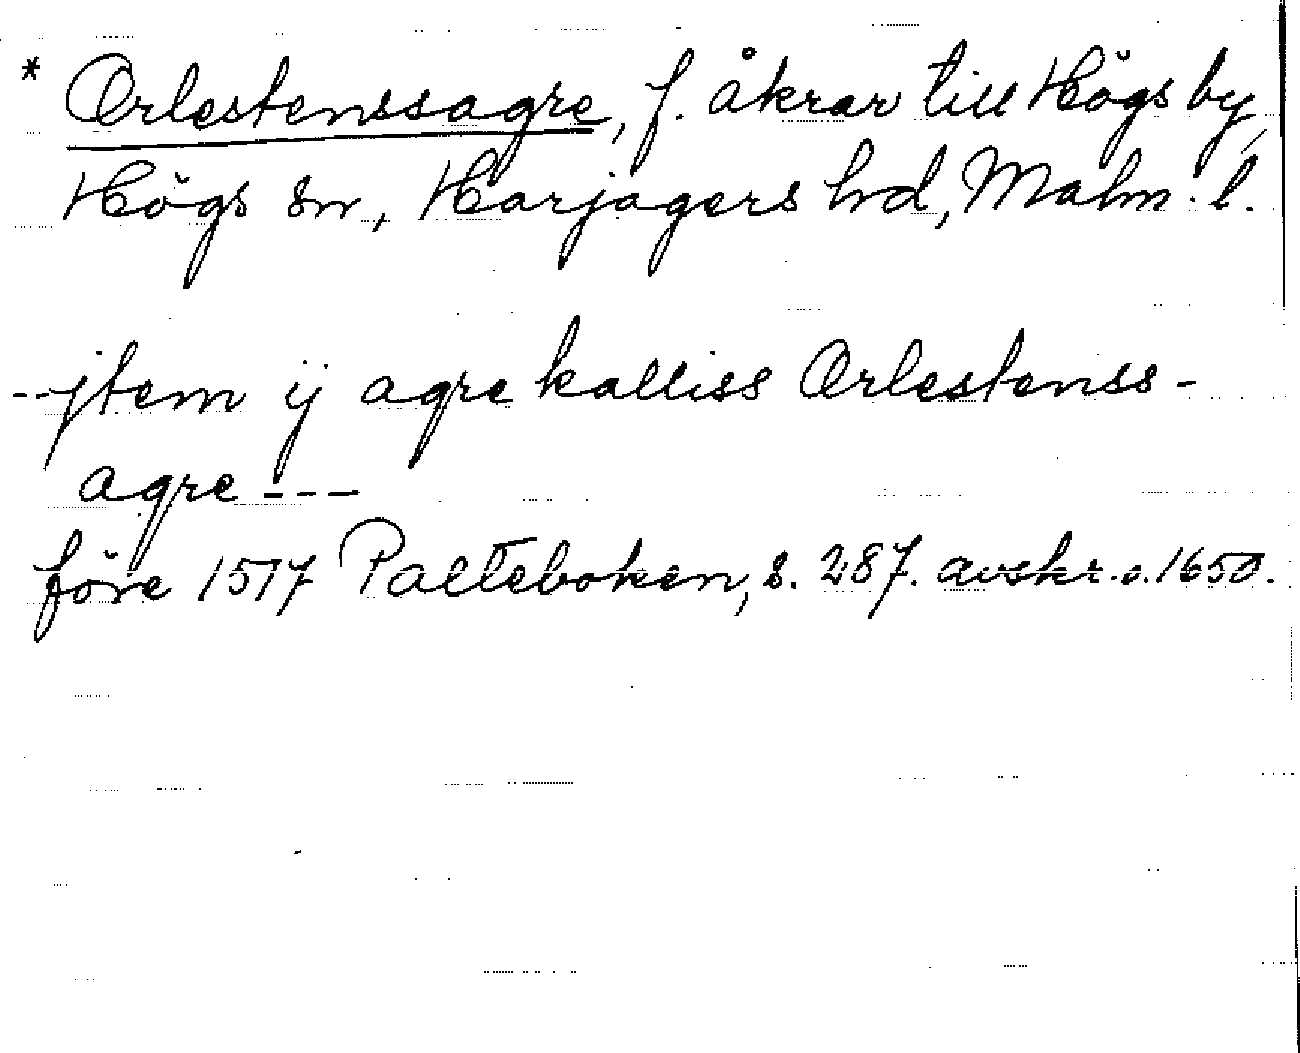 * Ørlestenssagre, f. åkrar till Högs by,
Högs sn, Harjagers hd, Malm. l.
--jtem ij agre kalliss Ørlestenss-
agre ---
före 1517 Palteboken, s. 287. avskr. o. 1650.